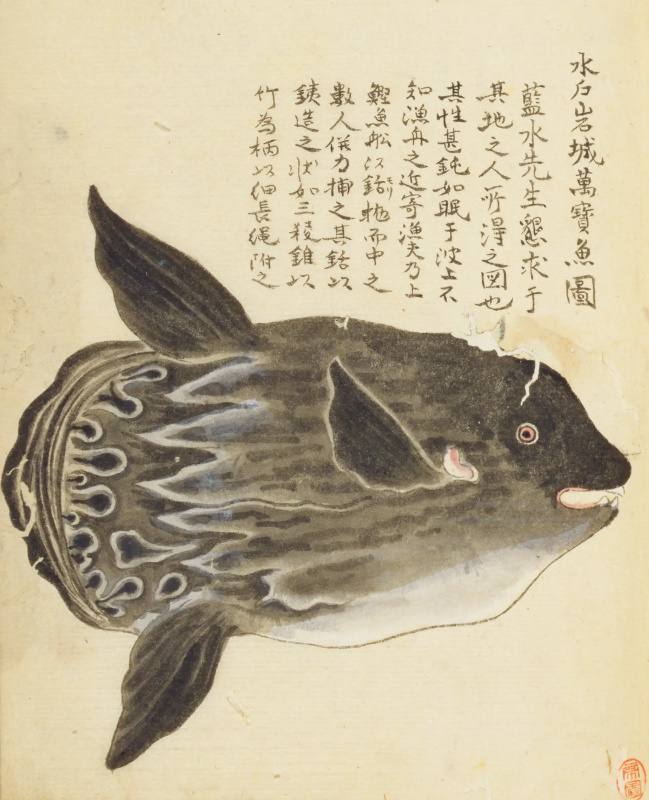 水戶岩城萬寶魚圖
藍水先生懇求于
其地之人所得之図也
其性甚鈍如眠于波上不
知漁舟之近寄漁夫乃上
鰹魚舩以銛抛而中之
數人併力捕之其銛以
銕造之状如三稜錐以
竹為柄以细長縄附之